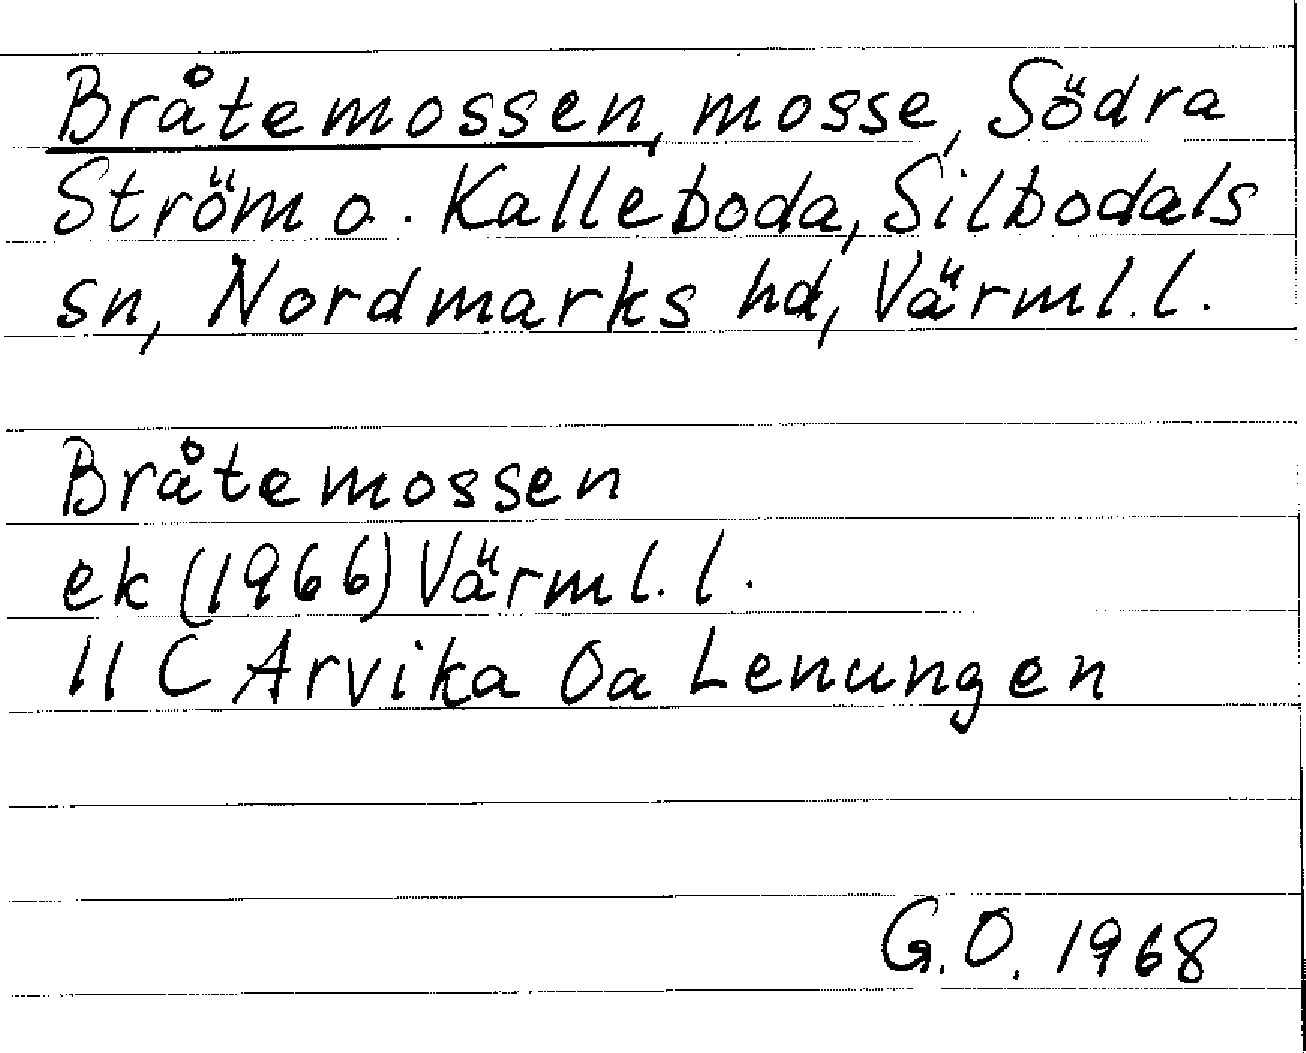 Bråtemossen, mosse, Södra
Ström o. Kalleboda, Silbodals
sn, Nordmarks hd, Värml. l.
Bråtemossen
ek (1966) Värml. l.
11 C Arvika Oa Lenungen
G.O. 1968